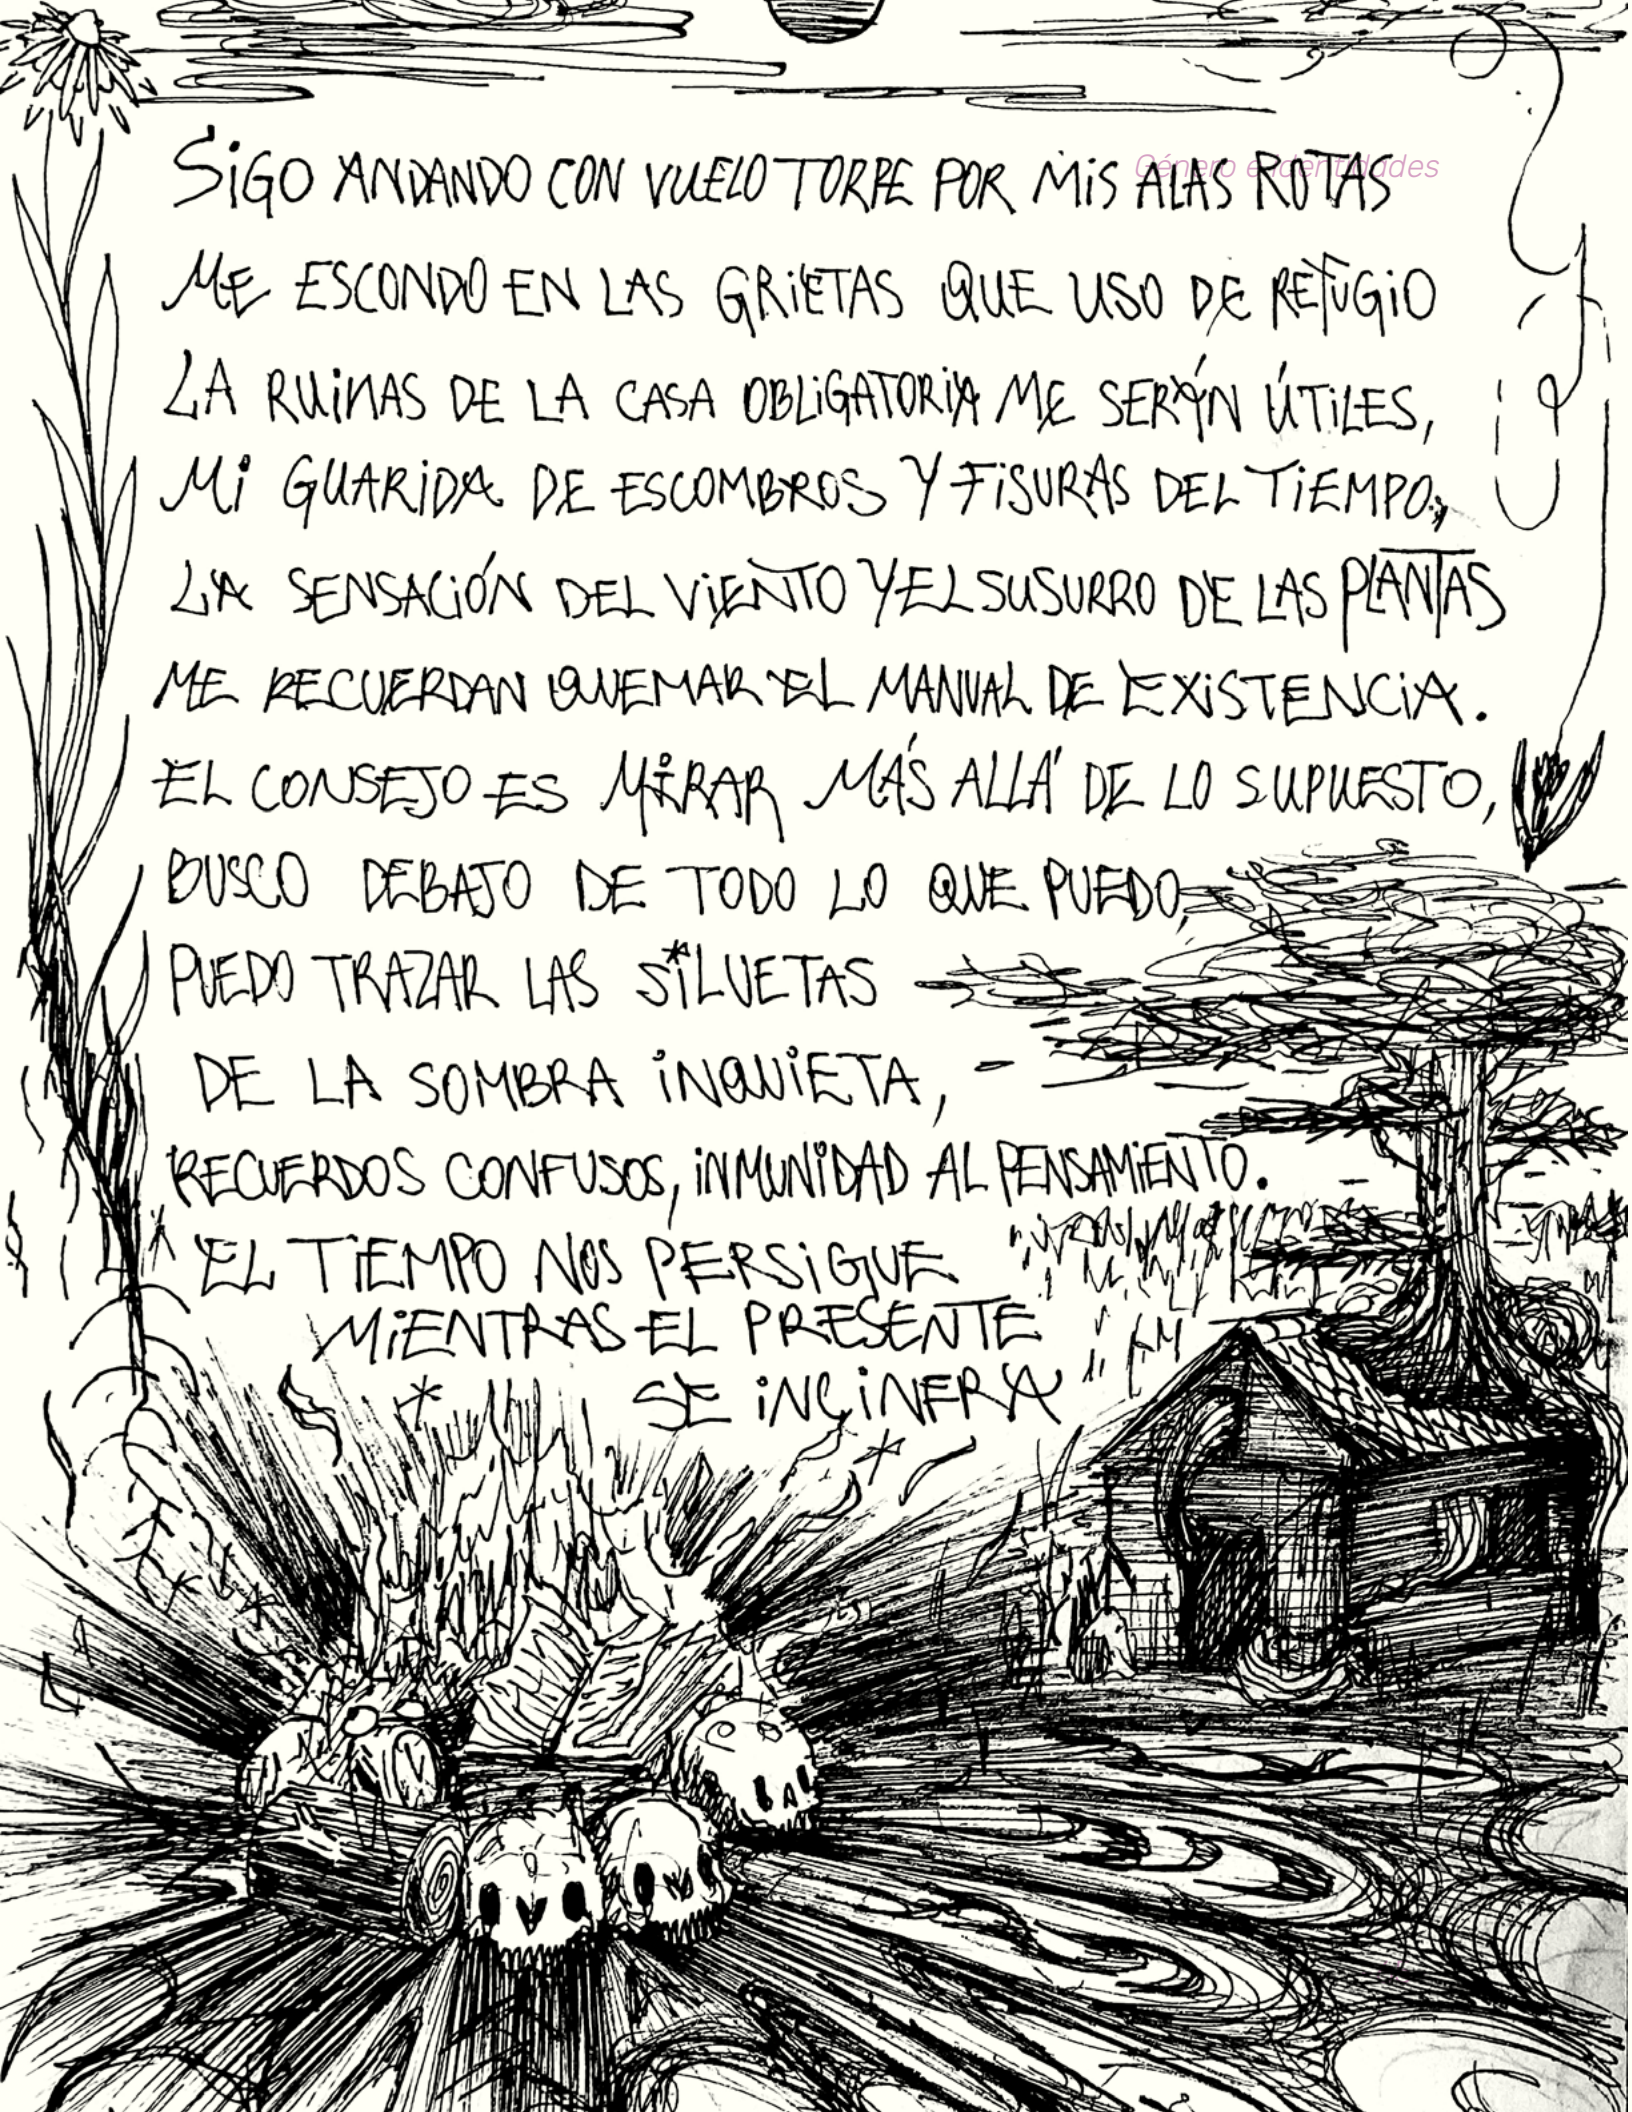 Género e identidades
SIGO ANDANDO CON VUELO TORPE POR MIS ALAS ROTAS
ME ESCONDO EN LAS GRIETAS QUE USO DE REFUGIO
LA RUINAS DE LA CASA OBLIGATORIA ME SERÁN ÚTILES,
MI GUARIDA DE ESCOMBROS Y FISURAS DEL TIEMPO,
LA SENSACIÓN DEL VIENTO Y EL SUSURRO DE LAS PLANTAS
ME RECUERDAN QUEMAR EL MANUAL DE EXISTENCIA.
EL CONSEJO ES MIRAR MÁS ALLÁ DE LO SUPUESTO,
BUSCO DEBAJO DE TODO LO QUE PUEDO,
PUEDO TRAZAR LAS SILUETAS
DE LA SOMBRA INQUIETA,
RECUERDOS CONFUSOS, INMUNIDAD AL PENSAMIENTO.
EL TIEMPO NOS PERSIGUE
MIENTRAS EL PRESENTE
SE INCINERA